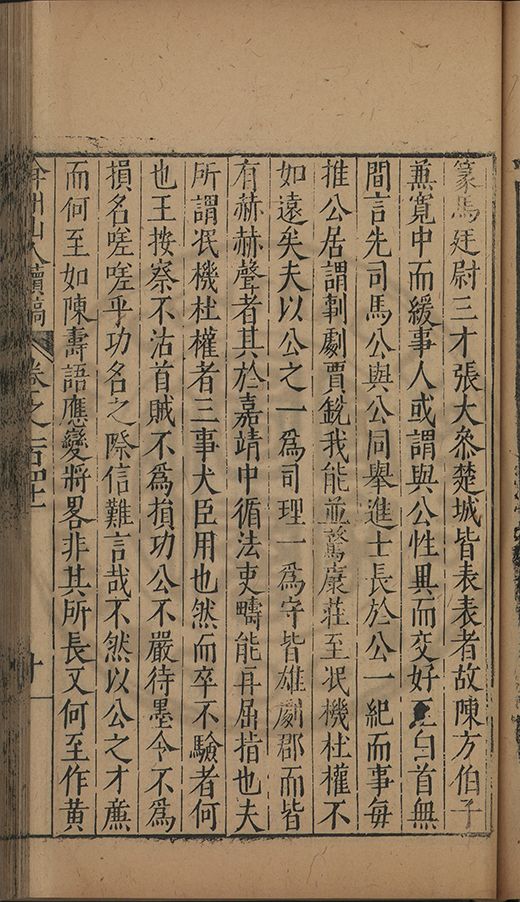 篆馬廷尉三才張大叅楚城皆表表者故陳方伯子
蒹寬中而緩事人或謂與公性異而交好至白首無
間言先司馬公與公同舉進士長於公一紀而事每
推公居謂剸劇賈銳我能並騖康莊至泯機杜權不
如遠矣夫以公之一爲司理一爲守皆雄劇郡而皆
有赫赫聲者其於嘉靖中循法吏疇能再屈指也夫
所謂泯機杜權者三事大臣用也然而卒不驗者何
也王按察不沽首賊不爲損功公不嚴待墨令不爲
損名嗟嗟乎功名之際信難言哉不然以公之才廉
而何至如陳壽語應變將畧非其所長又何至作黄
弇州山人續稿 卷之一百四十二 十